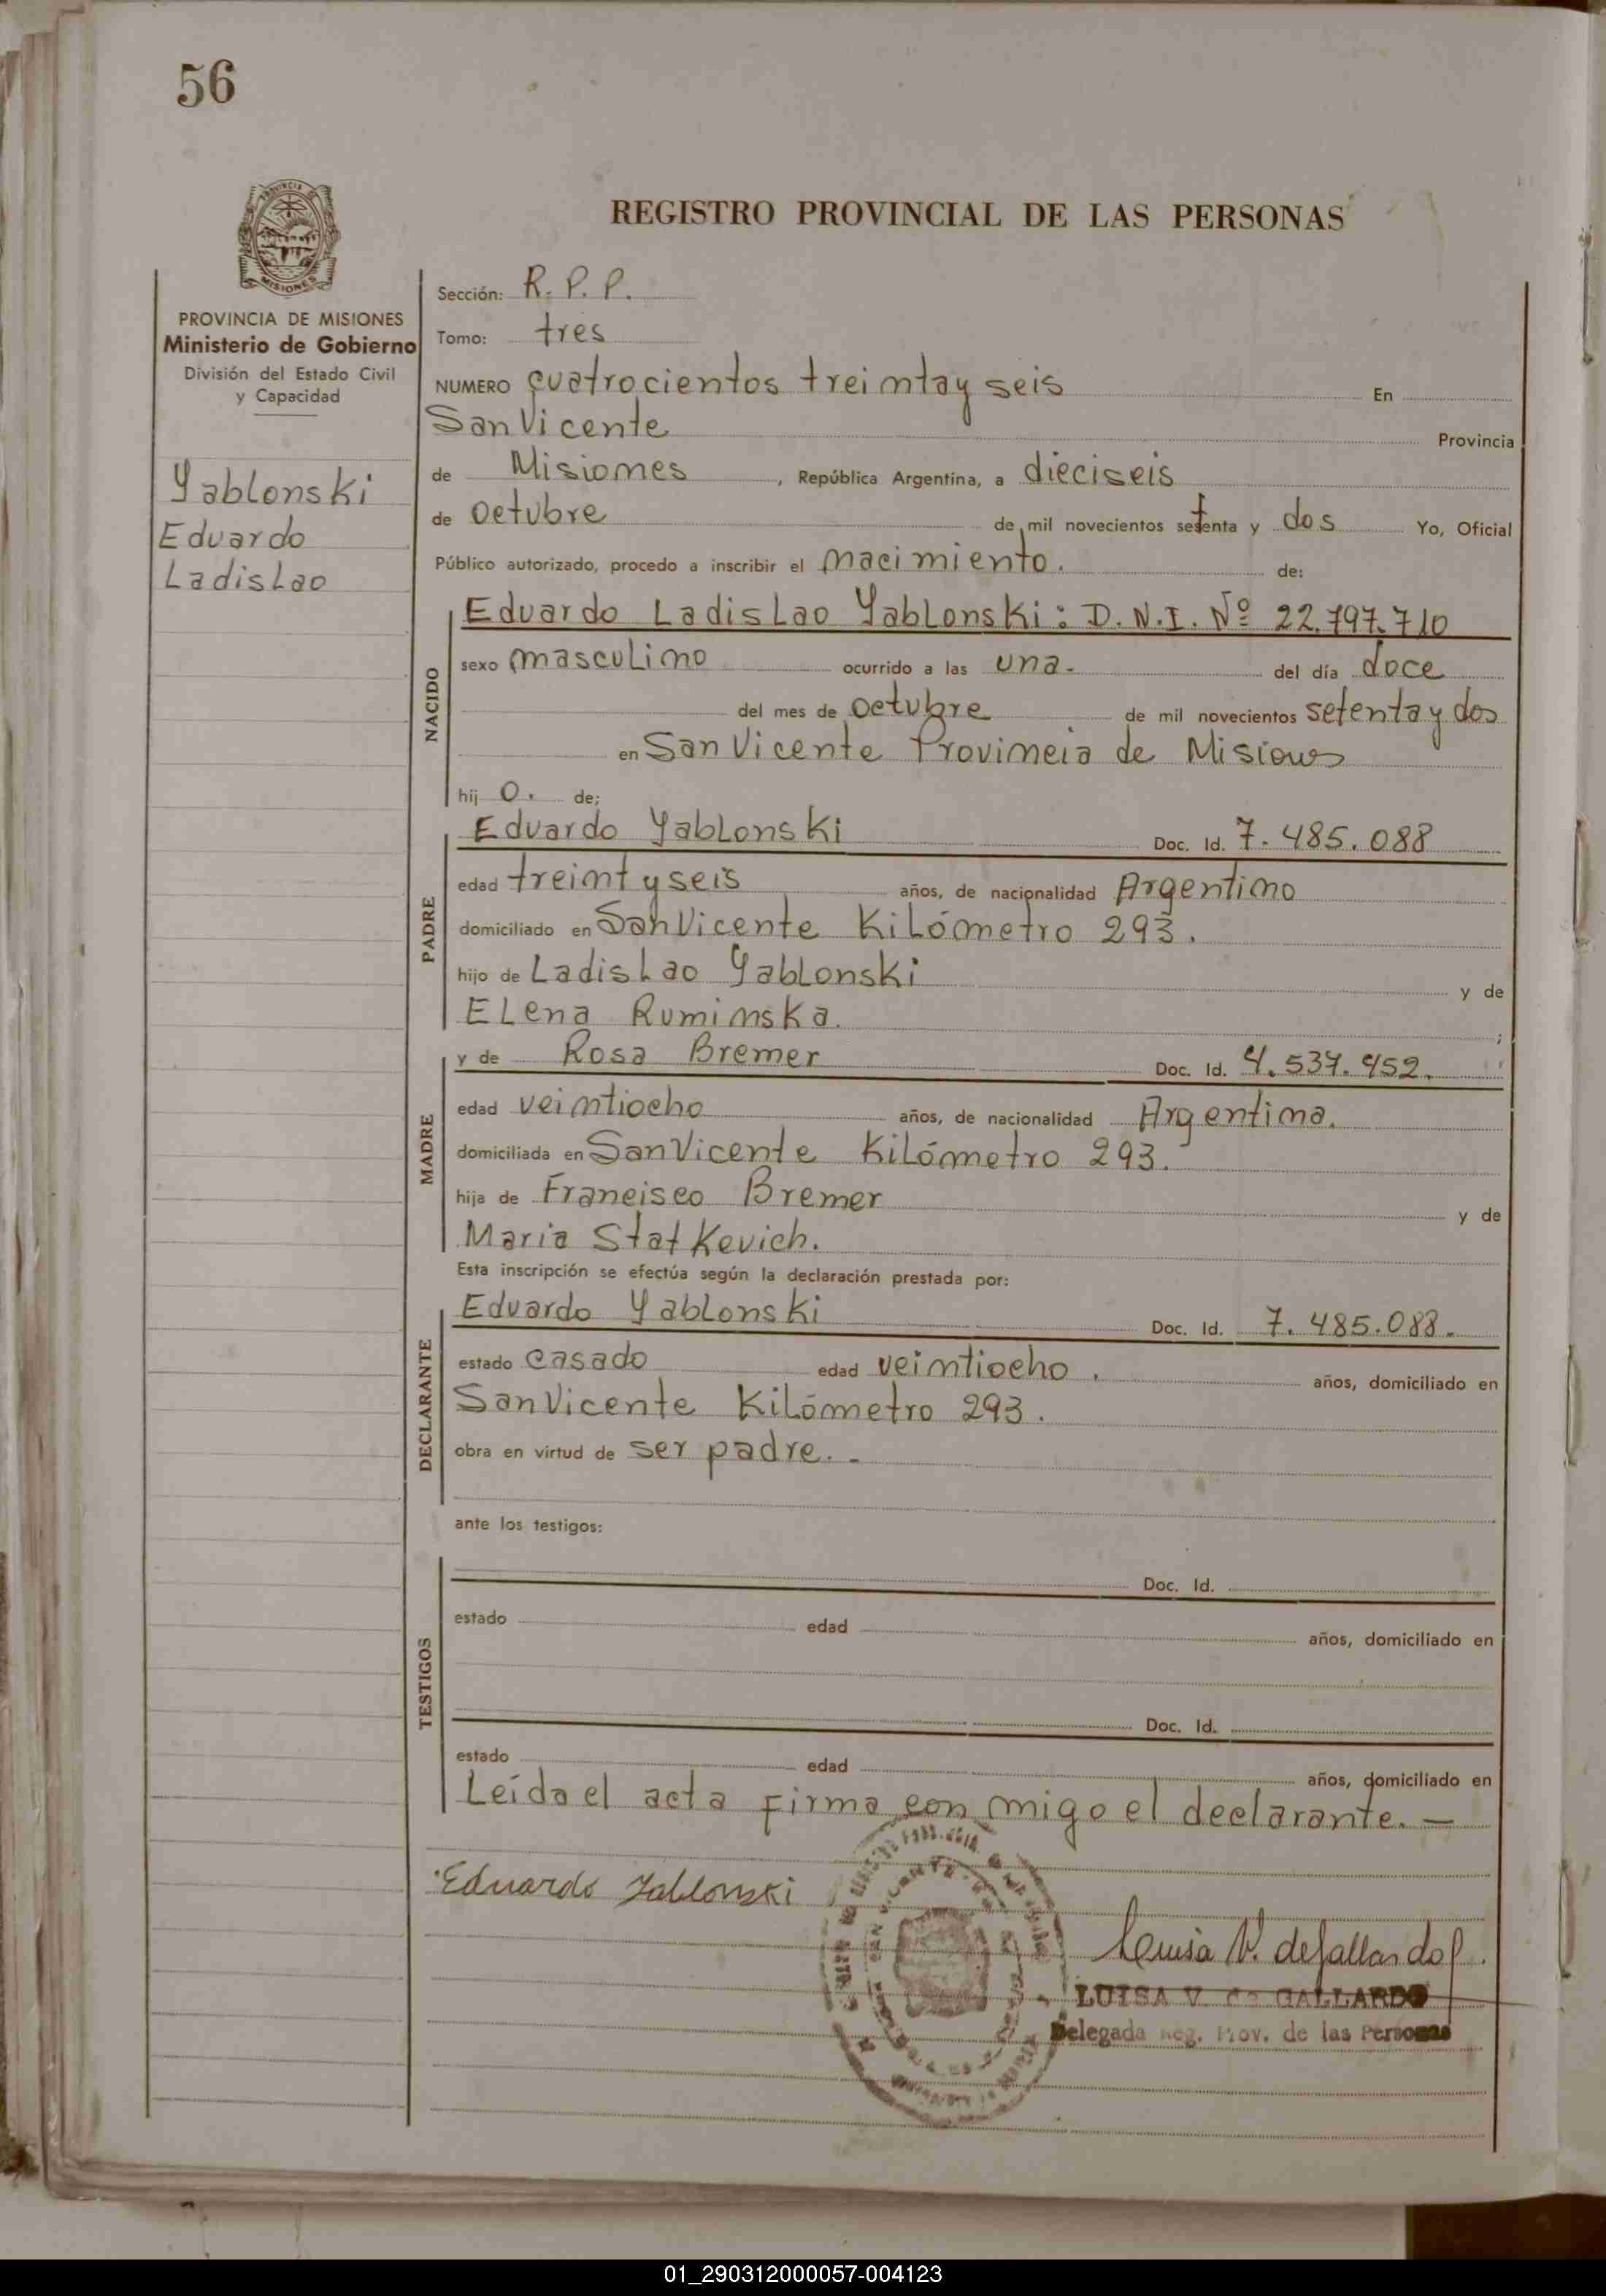 56
PROVINCIA DE MISIONES
REGISTRO PROVINCIAL DE LAS PERSONAS
PROVINCIA DE MISIONES
Ministerio de Gobierno
División del Estado Civil
y Capacidad
Yablonski
Eduardo
Ladislao
Sección: R. P. P.
Tomo: tres
NUMERO cuatrocientos treintay seis En
San Vicente Provincia
de Misiones, República Argentina, a dieciseis
de octubre de mil novecientos setenta y dos Yo, Oficial
Público autorizado, procedo a inscribir el nacimiento. de:
NACIDO
Eduardo Ladislao Yablonski: D.N.I. Nº 22.797.710
sexo masculino ocurrido a las una. del día doce
del mes de octubre de mil novecientos setenta y dos
en San Vicente Provincia de Misiones
hij o. de;
PADRE
Eduardo Yablonski Doc. Id. 7.485.088
edad treint y seis años, de nacionalidad Argentino
domiciliado en San Vicente Kilómetro 293.
hijo de Ladislao Yablonski y de
Elena Ruminska. ;
MADRE
y de Rosa Bremer Doc. Id. 4.537.952.
edad veintiocho años, de nacionalidad Argentina.
domiciliada en San Vicente Kilómetro 293.
hija de Francisco Bremer y de
Maria Statkevich.
Esta inscripción se efectúa según la declaración prestada por:
DECLARANTE
Eduardo Yablonski Doc. Id. 7.485.088.
estado casado edad veintiocho. años, domiciliado en
San Vicente Kilómetro 293.
obra en virtud de ser padre.-
ante los testigos:
TESTIGOS
Doc. Id.
estado edad años, domiciliado en
Doc. Id.
estado edad años, domiciliado en
Leída el acta firma con migo el declarante. —
Eduardo Yablonski
Luisa V. de Gallardo
LUISA V. de GALLARDO
Delegada Reg. Prov. de las Personas
01_290312000057-004123